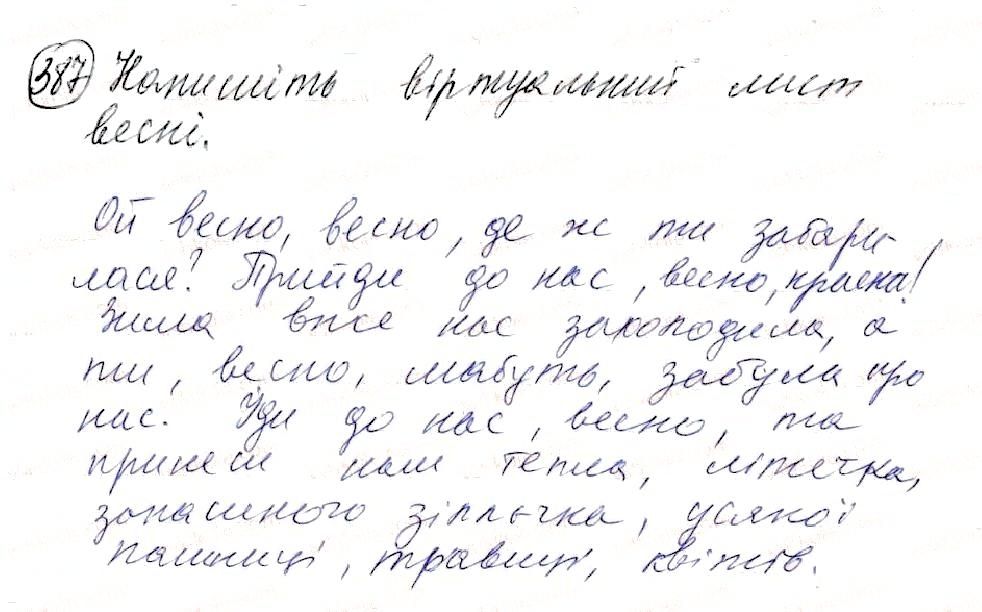 387 Напишіть віртуальний лист
весні.
Ой весно, весно, де ж ти забари
лася? Прийди до нас, весно, красна!
Зима вже нас захолодила, а
ти, весно, мабуть, забула про
нас. Йди до нас, весно, та
принеси нам тепла, літечка,
запашного зіллячка, усякої
пашниці, травиці, квітів.